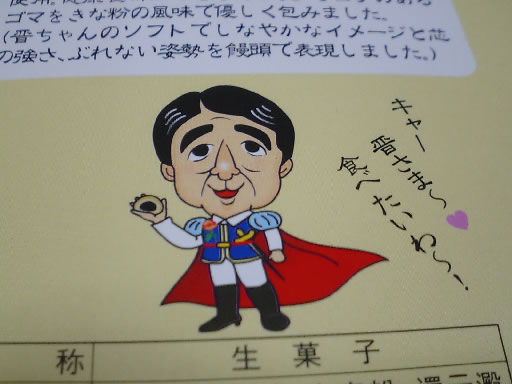 ゴマをきな粉の風味で優しく包みました。
(晋ちゃんのソフトでしなやかなイメージと芯
の強さ、ぶれない姿勢を饅頭で表現しました。)
キャー
晋さま〜
食べたいわ〜!
称 生菓子